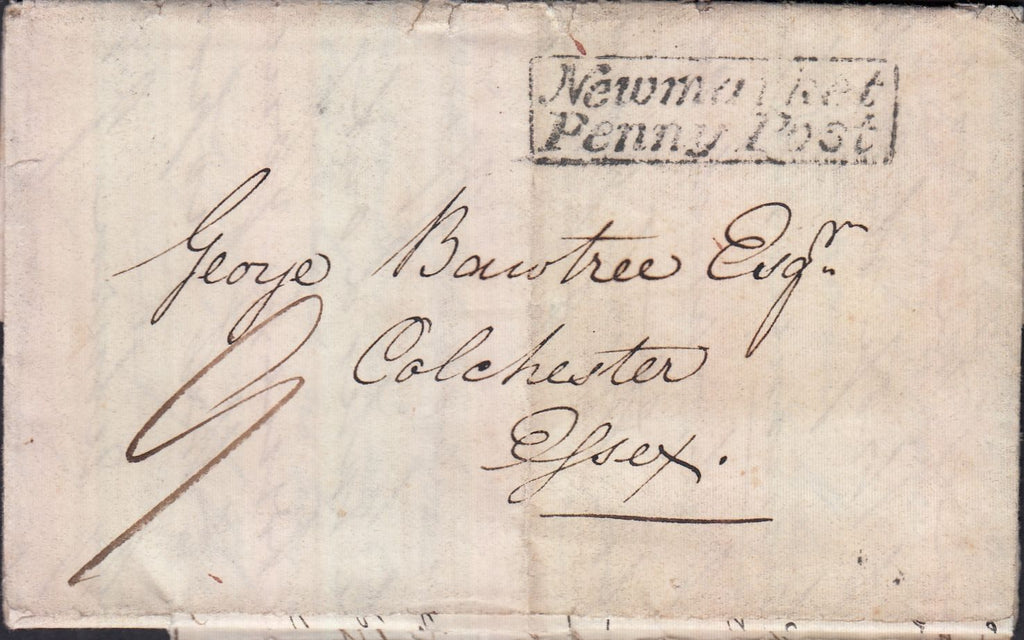 Newmarket
Penny Post
George Bawtree Esqr.
Colchester
Essex.
9